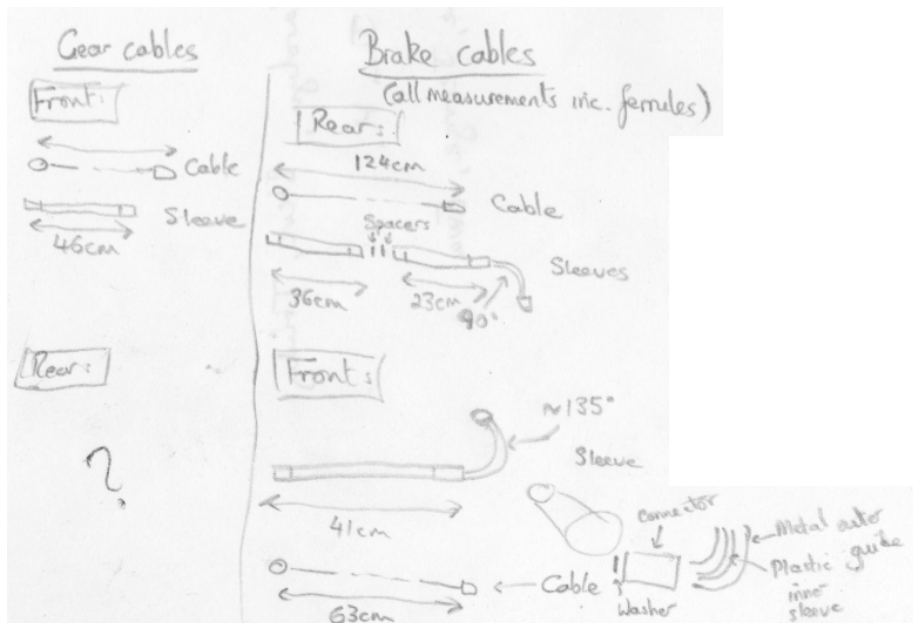 Gear cables
Front:
Cable
Sleeve
46cm
Rear:
?
Brake cables
(all measurements inc. ferrules)
Rear:
124cm
Cable
Spacers
Sleeves
36cm
23cm
90°
Front:
~135°
Sleeve
41cm
Cable
63cm
Connector
Washer
Metal outer
Plastic guide
inner
sleeve